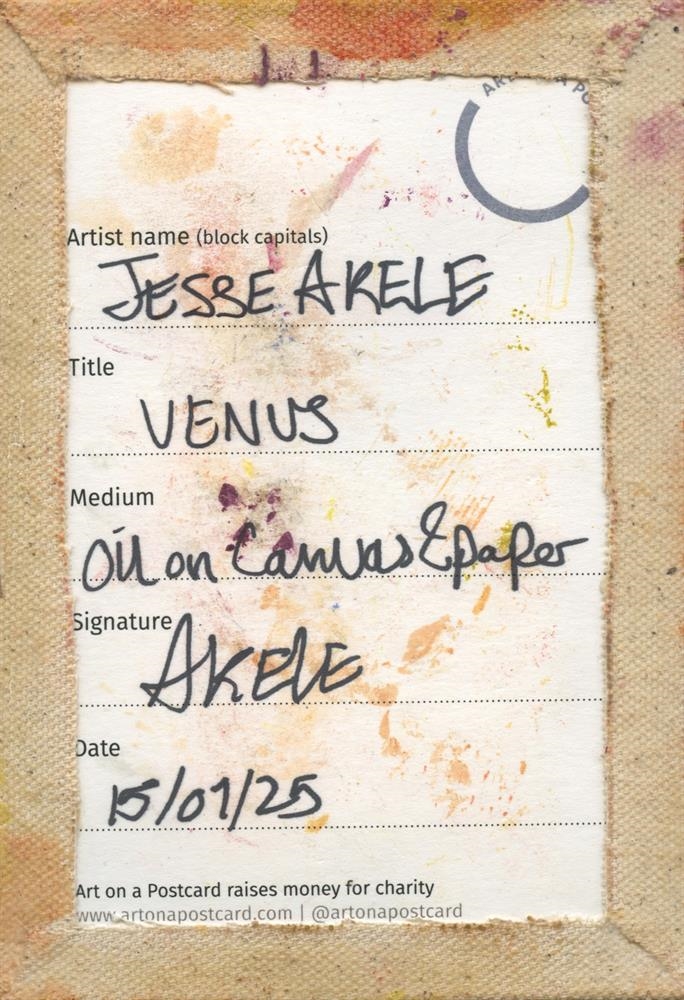 AR A PO
Artist name (block capitals)
JESSE AKELE
Title
VENUS
Medium
Oil on Canvas & paper
Signature
AKELE
Date
15/01/25
Art on a Postcard raises money for charity
www.artonapostcard.com | @artonapostcard